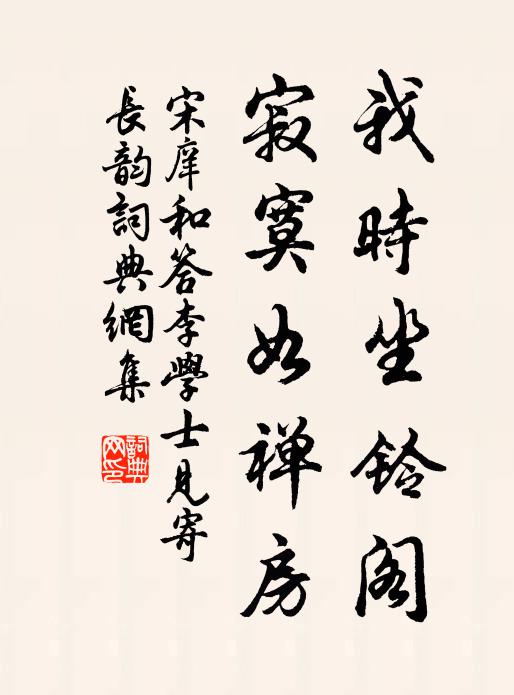 我時坐鈴閣
寂寞如禅房
宋庠和答李學士見寄
長韵詞典網集
詞典網印